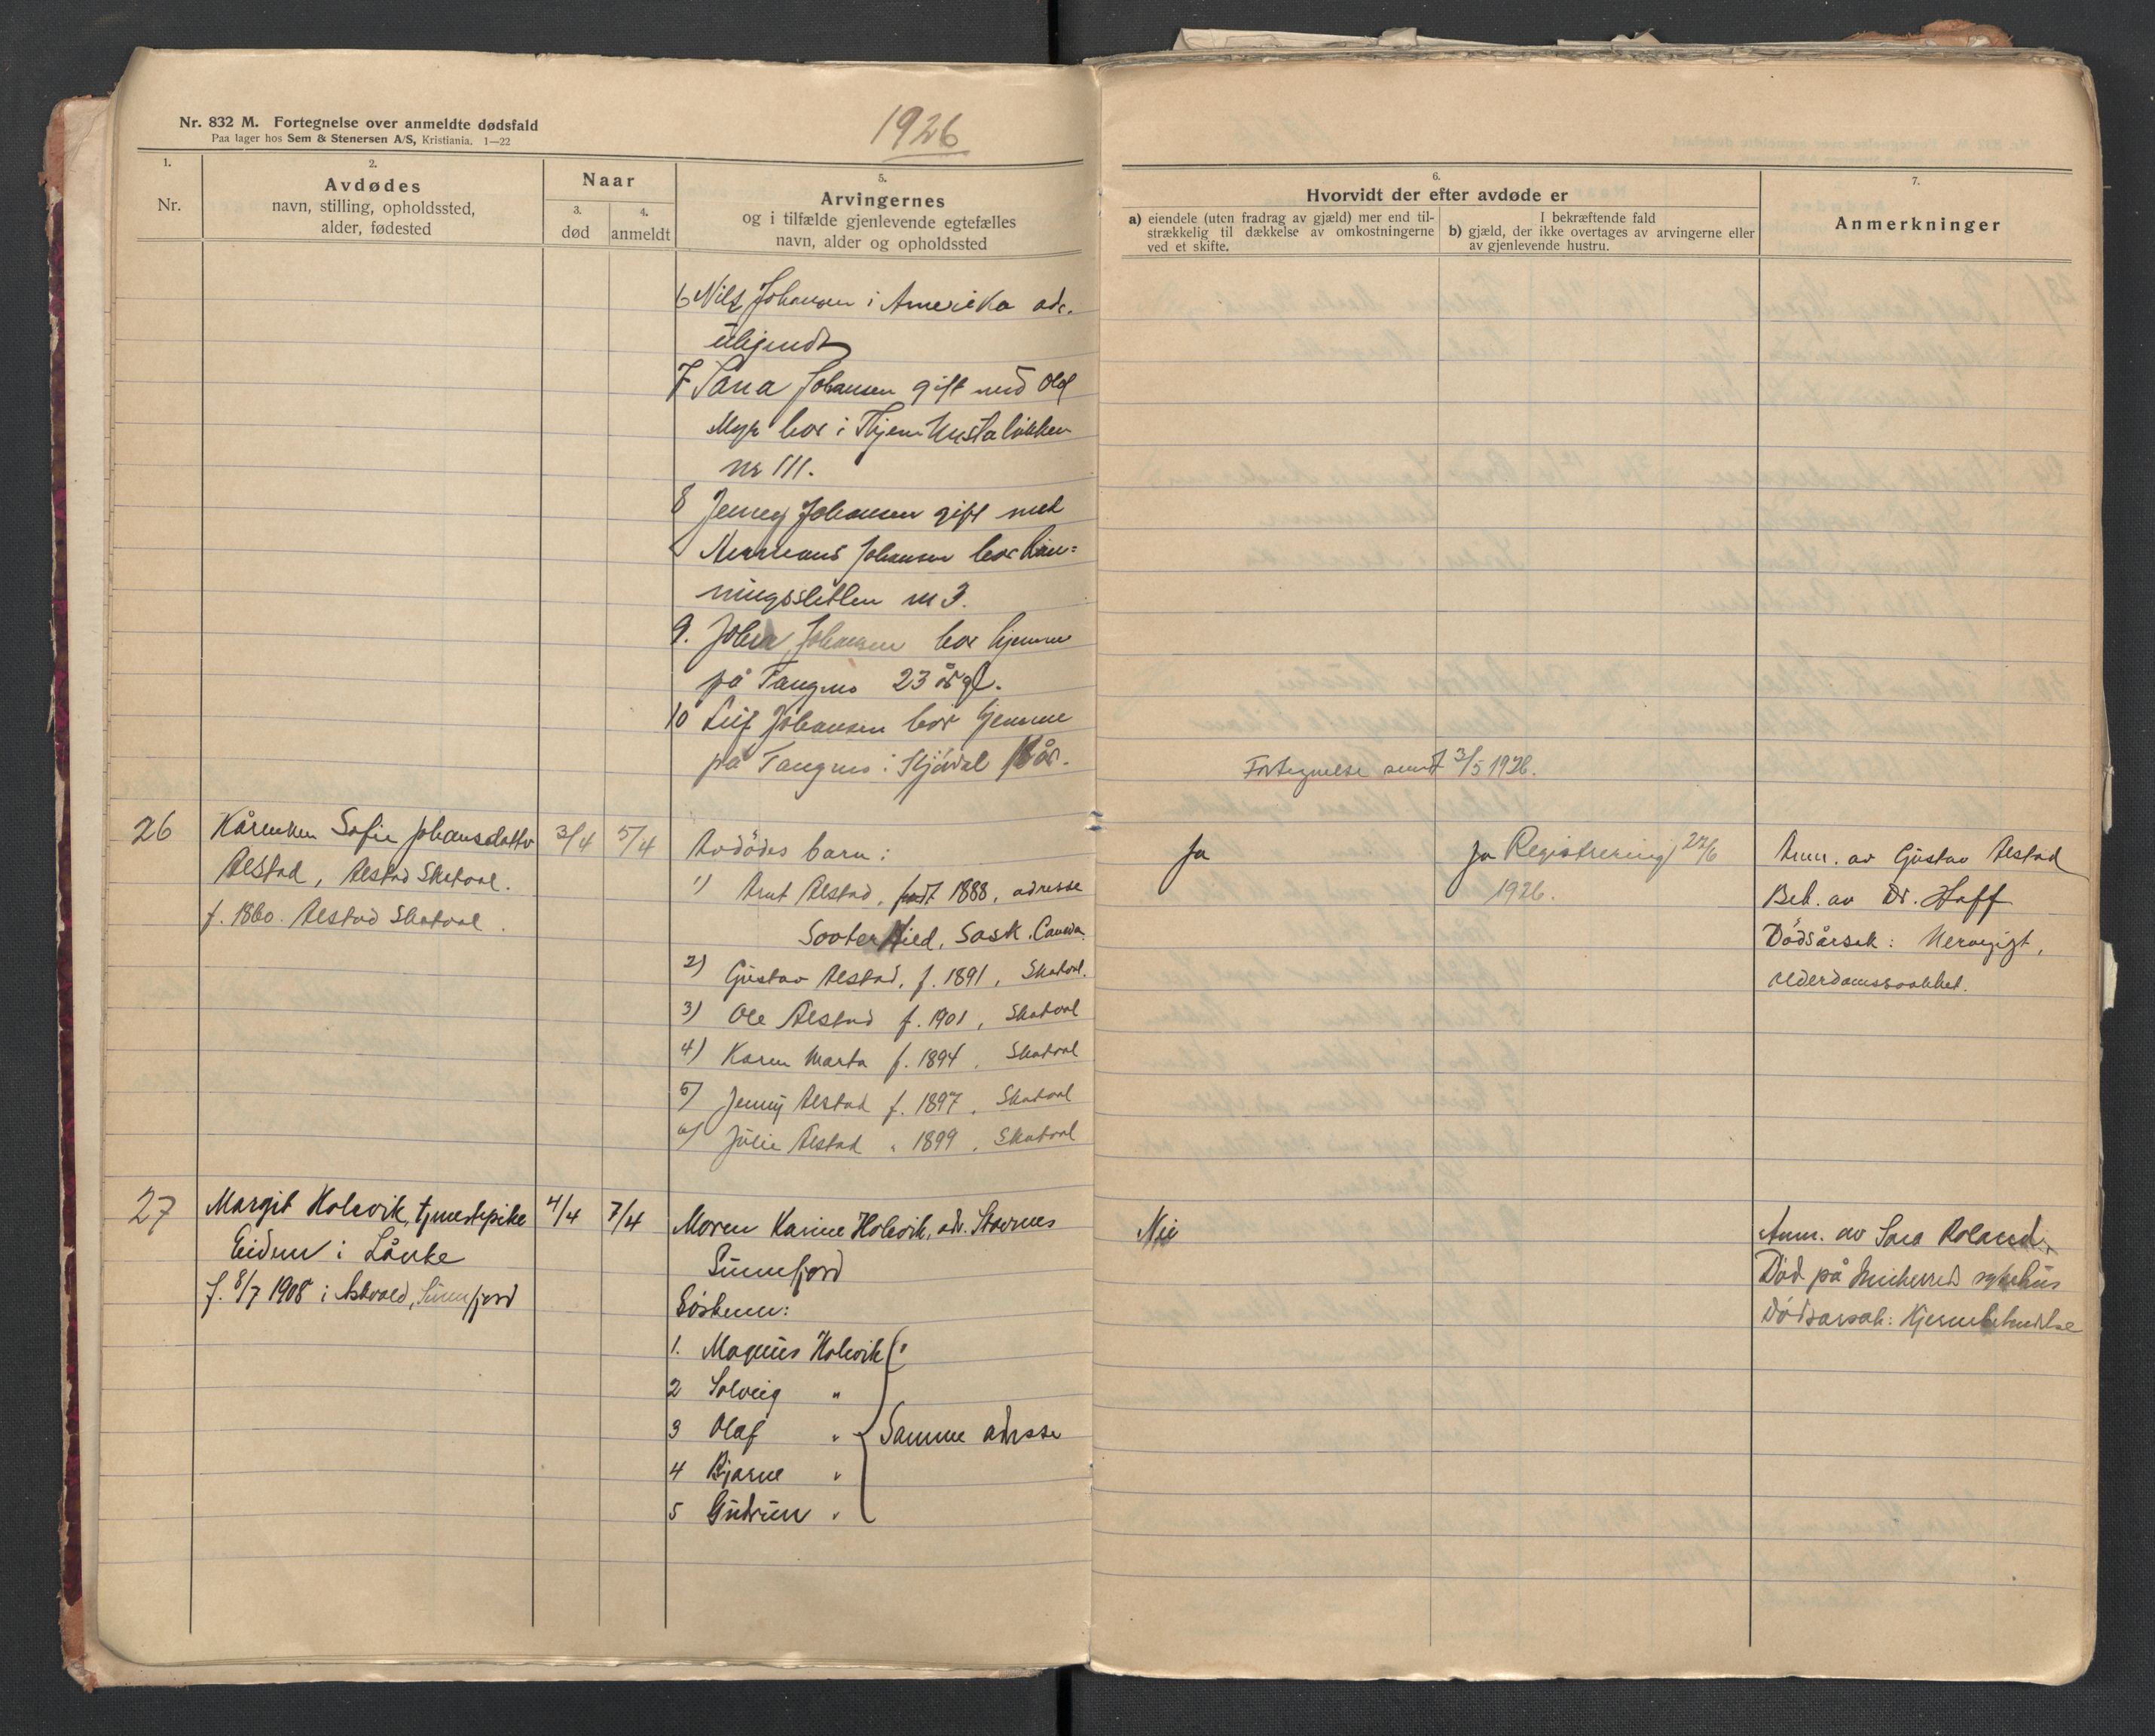 Nr. 832 M. Fortegnelse over anmeldte dødsfald
Paa lager hos Sem & Stenersen A/S, Kristiania. 1—22
1926
1.
Nr.
2.
Avdødes
navn, stilling, opholdssted,
alder, fødested
Naar
3.
død
4.
anmeldt
5.
Arvingernes
og i tilfælde gjenlevende egtefælles
navn, alder og opholdssted
6.
Hvorvidt der efter avdøde er
a) eiendele (uten fradrag av gjæld) mer end til-
strækkelig til dækkelse av omkostningerne
ved et skifte.
I bekræftende fald
b) gjæld, der ikke overtages av arvingerne eller
av gjenlevende hustru.
7.
Anmerkninger
6 Nils Johansen i Amerika adr.
ubekjendt
7 Sana Johansen gift med Olof
Myr bor i
nr 111.
8 Jenny Johansen gift med
Johansen bor
nr 3.
9. Johan Johansen bor hjemme
på Tangmo 23 år gl.
10 Leif Johansen bor hjemme
på Tangmo i Stjørdal år.
Fortegnelse sendt 3/5 1926.
26
Sofie Johansdatter
Alstad, Alstad Skatval.
f. 1860. Alstad Skatval.
3/4
5/4
Avdødes barn:
1) Arnt Alstad, født 1888, adresse
Sask. Canada.
2) Gustav Alstad, f. 1891, Skatval.
3) Ole Alstad f. 1901, Skatval
4) Karen Marta f. 1894, Skatval
5) Jenny Alstad f. 1897, Skatval
6) Julie Alstad " 1899, Skatval
Ja
Ja Registrering 22/6
1926.
Anm. av Gustav Alstad
Beh. av Dr. Hoff
Dödsårsak: Nervegigt,
alderdomssvakhet.
27
Margit Holevik, tjenestepike
Eidum i Lånke
f. 8/7 1908 i Askvold, Sunnfjord
4/4
7/4
Moren Karine Holevik, adr. Stavnes
Sunnfjord
Søsken:
1. Magnus Holevik
2 Solveig "
3 Olaf "
4 Bjarne "
5 Gudrun "
Samme adresse
Nei
Anm. av Sara Roland.
Död på Innherred sykehus
Dödsårsak: Hjernebetendelse